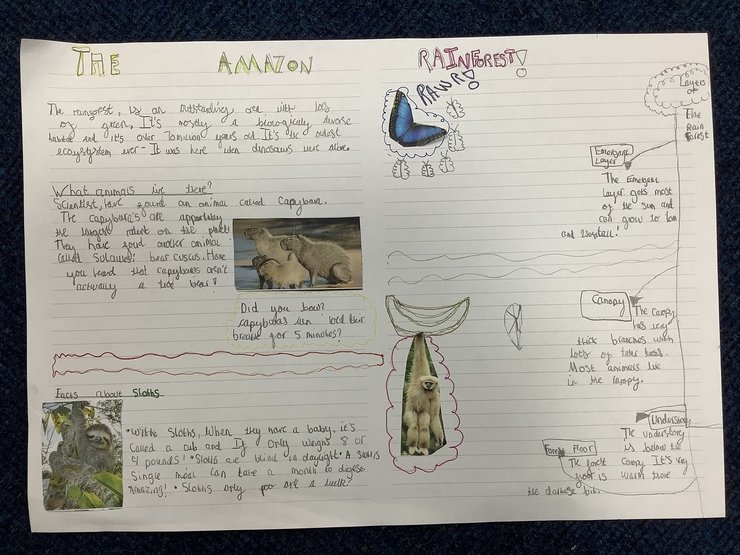 THE AMAZON RAINFOREST!
The rainforest, is an outstanding area with lots
of green. It's mostly a biologically diverse
habitat and it's over 70 million years old. It's the oldest
ecosystem ever - It was here when dinosaurs were alive.
What animals live there?
Scientist, have found an animal called Capybara.
The capybara's are apparently
the largest rodent on the planet.
They have found another animal
called Sulawesi bear cuscus. Have
you heard that capybaras aren't
actually a true bear?
Did you know?
capybaras can hold their
breath for 5 minutes?
Facts about Sloths
• With Sloths, When they have a baby, it's
called a cub and If Only weighs 8 or
9 pounds! • Sloths are blind in daylight. • A Sloths
Single meal can take a month to digest
Amazing! • Sloths only poo once a week
RAWR!
Layers
of
The
Rain
forest
Emergent
Layer
The Emergent
Layer gets most
of the sun and
can grow to
and
Canopy
The Canopy
has very
thick branches with
lots of
Most animals live
in the canopy.
Understory
The understory
is below the
canopy It's very
warm there
Forest Floor
The forest
floor is
the darkest bit.